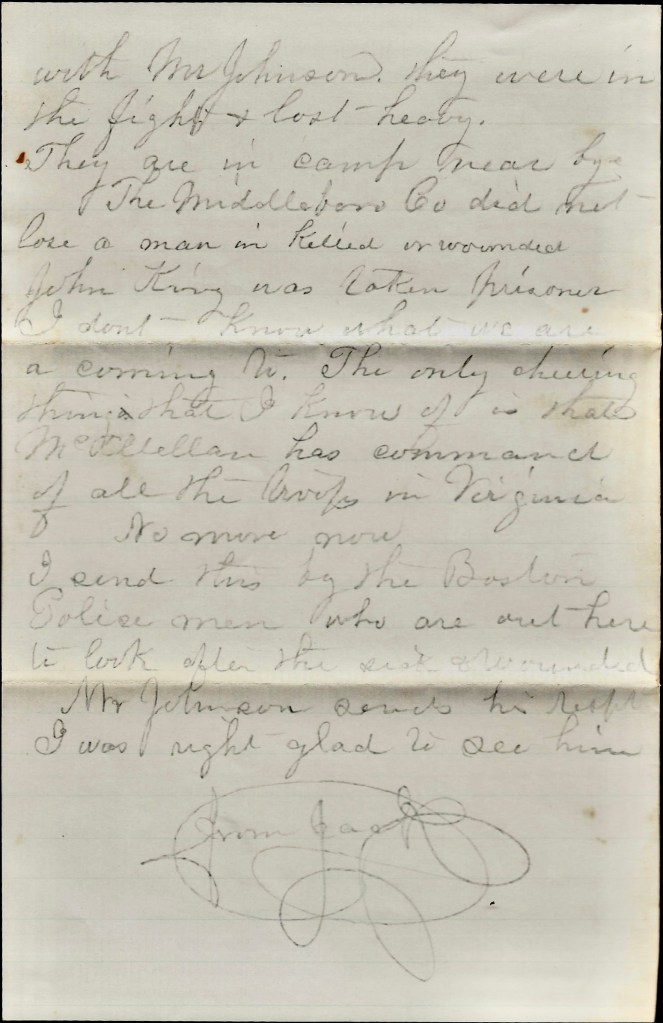 with Mr Johnson. they were in
the fight & lost heavy.
They are in camp near by
The Middleboro Co did not
lose a man in killed or wounded
John King was taken prisoner
I dont know what we are
a coming to. The only cheering
thing that I know of is that
McClellan has command
of all the troops in Virginia
No more now
I send this by the Boston
Police men who are out here
to look after the sick & wounded
Mr Johnson sends his respt
I was right glad to see him
From Jack